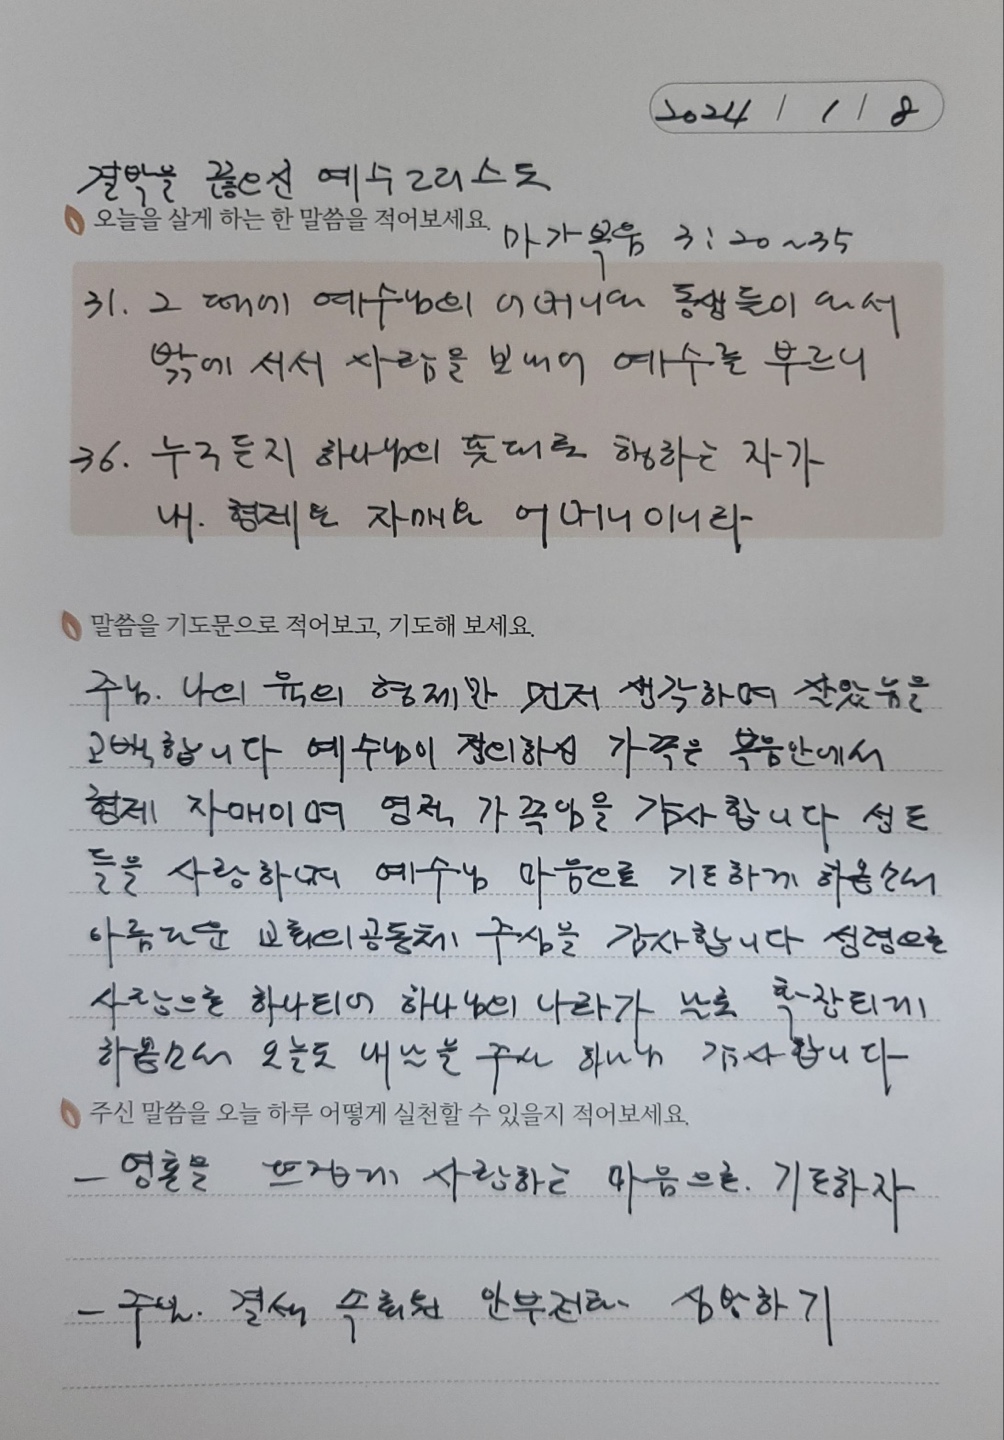 2024 / 1 / 8
결박을 끊으신 예수그리스도
오늘을 살게 하는 한 말씀을 적어보세요.
마가복음 3:20~35
31. 그 때에 예수님의 어머니와 동생들이 와서
밖에 서서 사람을 보내어 예수를 부르니
36. 누구든지 하나님의 뜻대로 행하는 자가
내. 형제요 자매요 어머니이니라
말씀을 기도문으로 적어보고, 기도해 보세요.
주님. 나의 육의 형제만 먼저 생각하며 살았음을
고백합니다 예수님이 정의하신 가족은 복음안에서
형제 자매이며 영적 가족임을 감사합니다 성도
들을 사랑하며 예수님 마음으로 기도하게 하옵소서
아름다운 교회의공동체 주심을 감사합니다 성령으로
사랑으로 하나되어 하나님의 나라가 날로 확장되게
하옵소서 오늘도 주사 하나님 감사합니다
주신 말씀을 오늘 하루 어떻게 실천할 수 있을지 적어보세요.
- 영혼을 뜨겁게 사랑하는 마음으로. 기도하자
- 주일. 결석 안부전화 심방하기